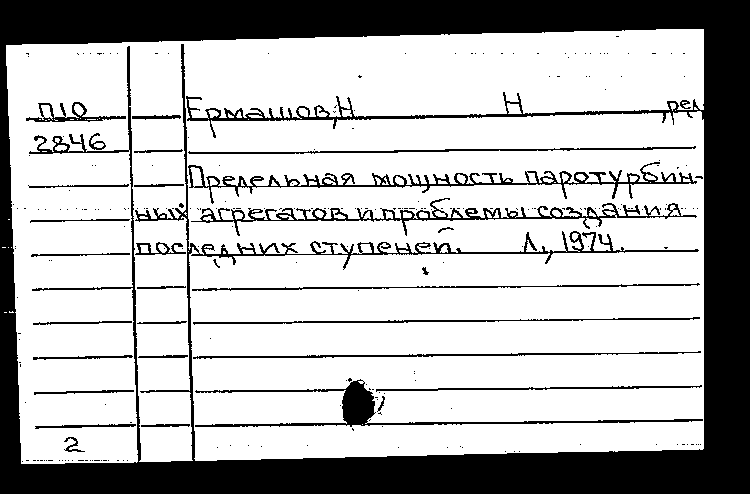 П10 Ермашов, Н Н , ред.
2846
Предельная мощность паротурбин-
ных агрегатов и проблемы создания
последних ступеней. Л., 1974.
2